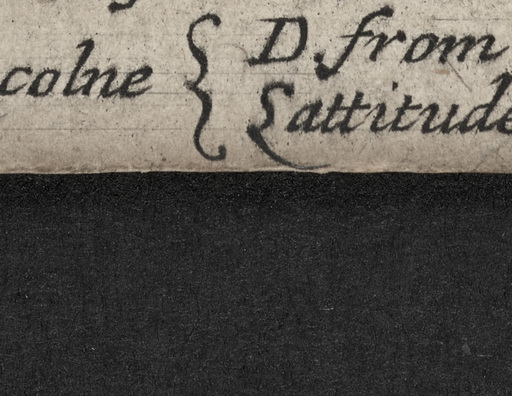 colne { D. from
Lattitude